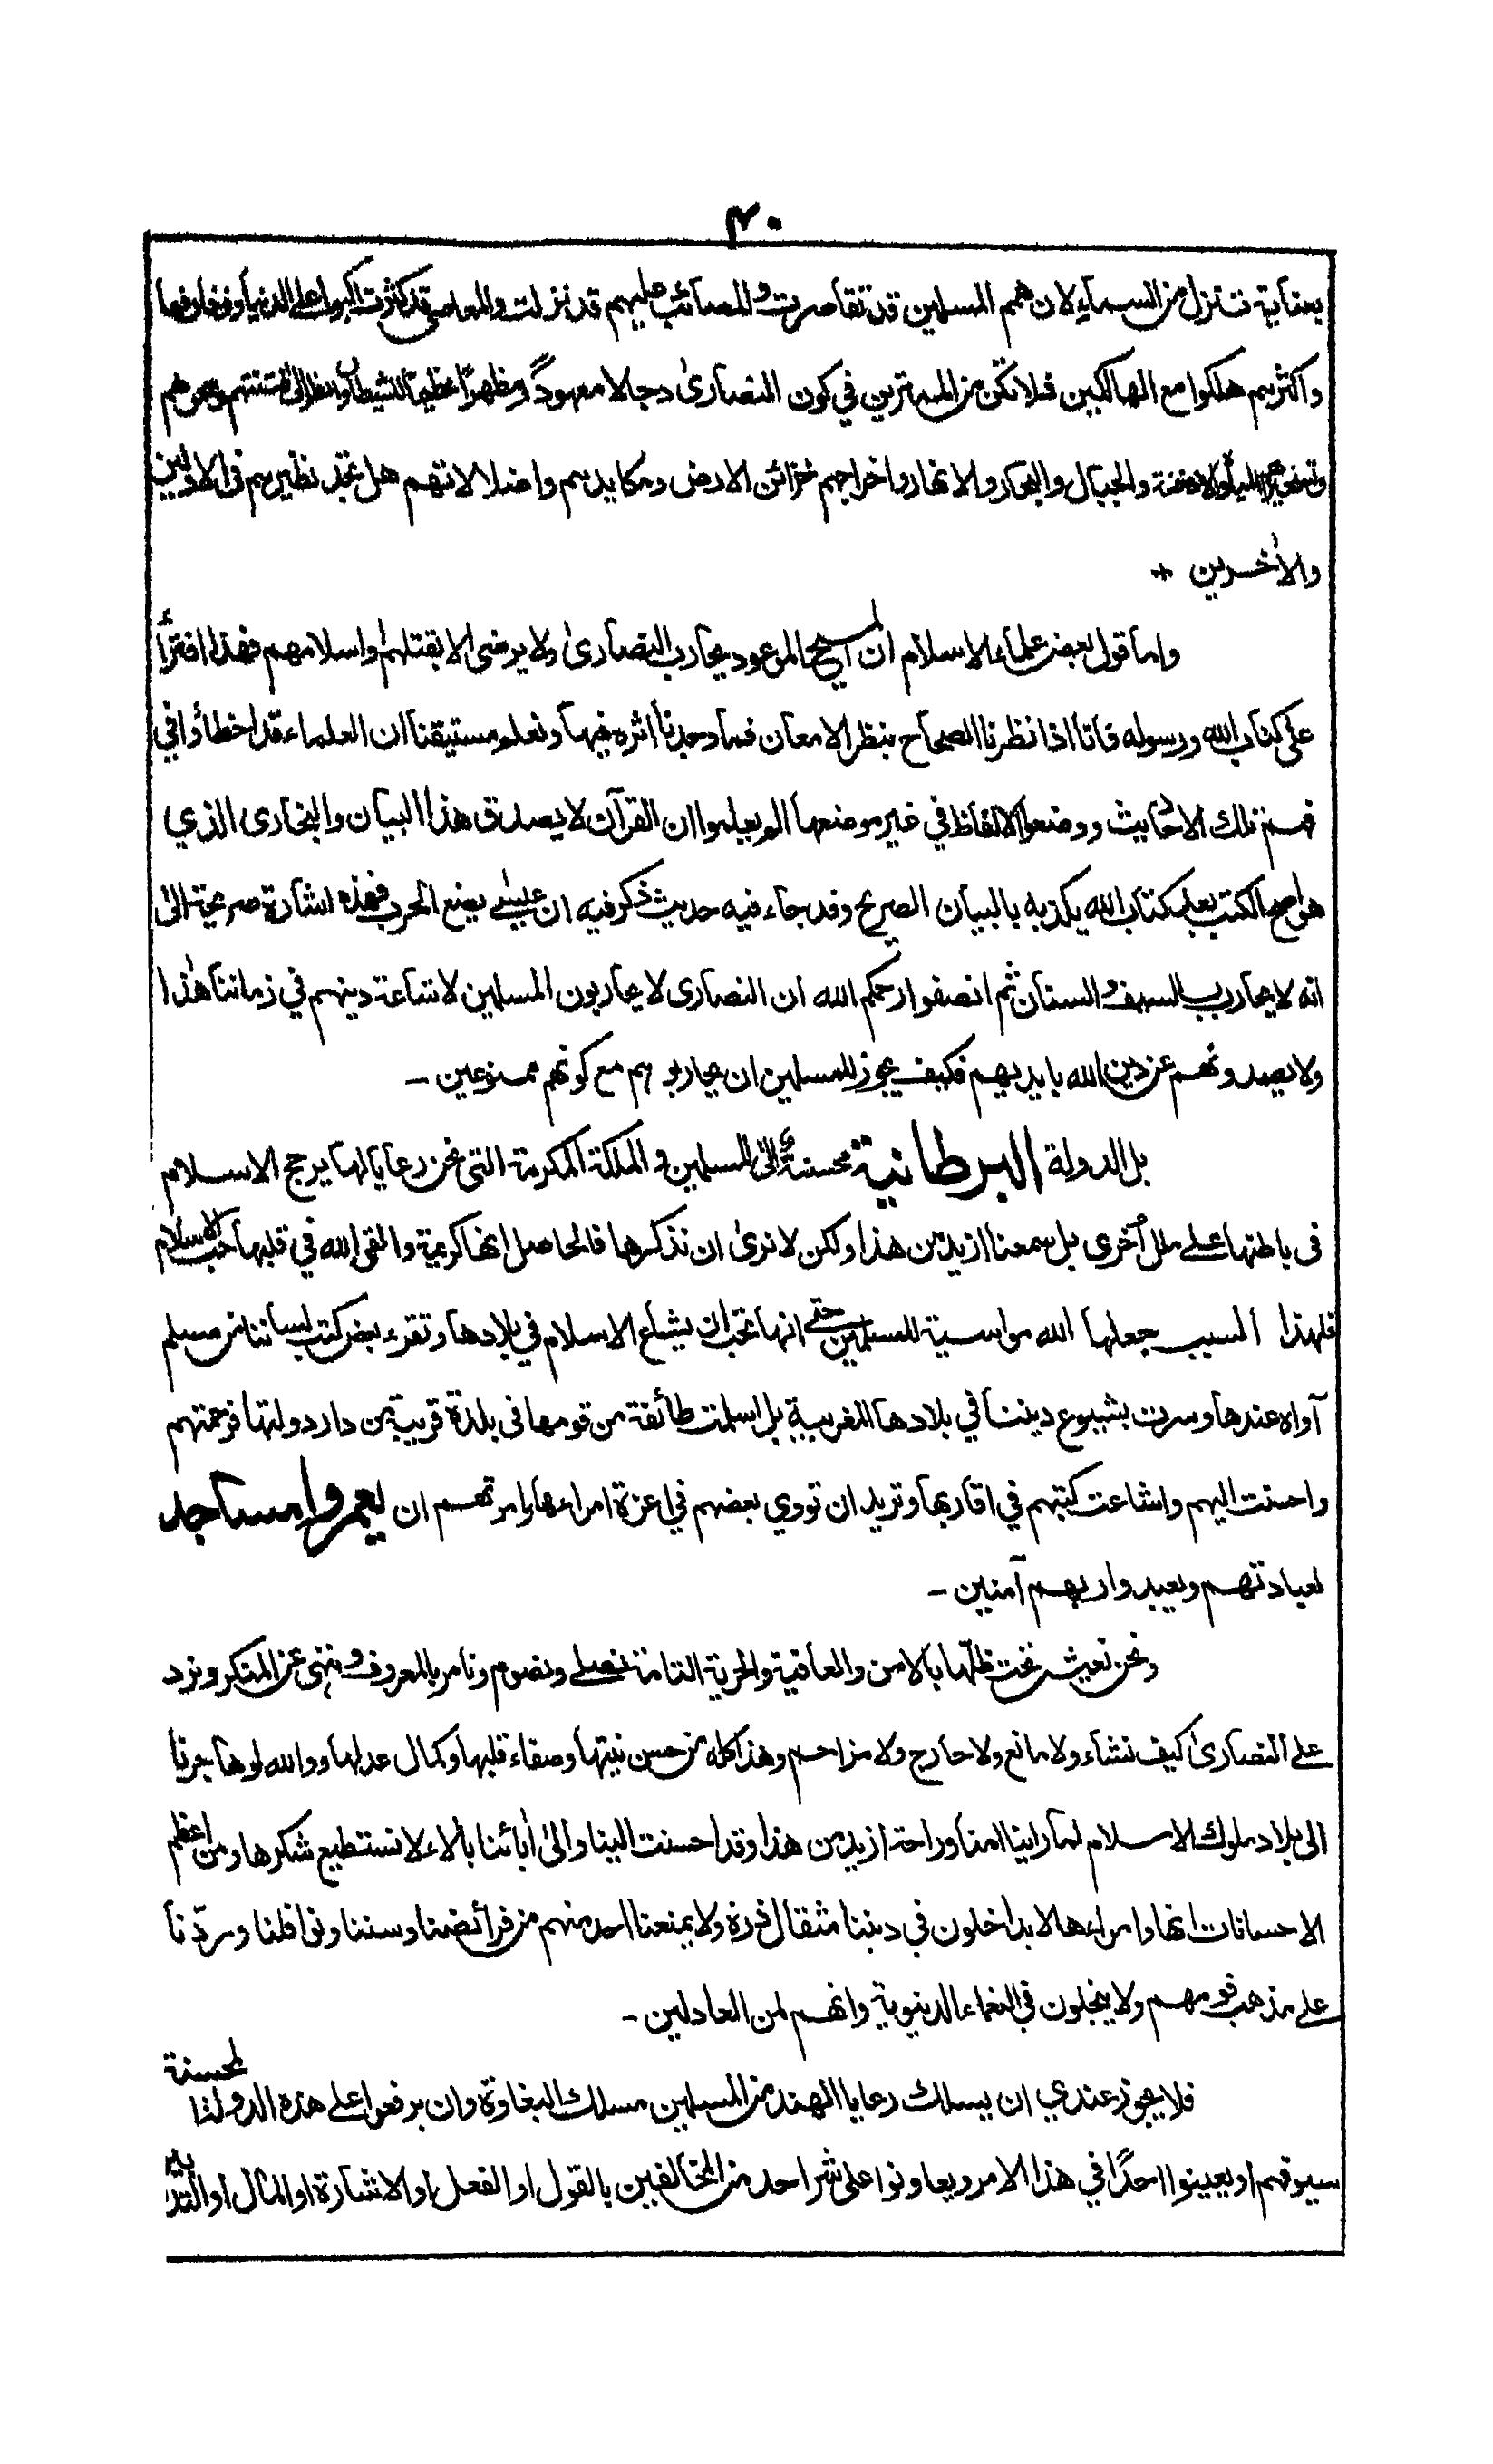 ۴۰
بعناية تتنزل من السماء لان همم المسلمين قد تقاصرت والمصائب عليهم قد نزلت والمعاصي قد كثرت اكبوا على الدنيا وزخارفها
واكثرهم هلكوا مع الهالكين فلا تكن من الممترين في كون النصارىٰ دجالا معهودًا ومظهرًا عظيمًا للشيطان وانظر الى فتنتهم وسحرهم
وتسخيرهم المياه والادخنة والجبال والبحار والانهار واخراجهم خزائن الارض ومكايدهم واضلالاتهم هل تجد نظيرهم في الاولين
والاٰخرين +
واما قول بعض علماء الاسلام ان المسيح الموعود يحارب النصارىٰ ولا يرضى الا بقتلهم او اسلامهم فهذا افتراءٌ
على كتاب الله ورسوله فانا اذا نظرنا الصحاح بنظر الامعان فما وجدنا اثره فيها ونعلم مستيقنا ان العلماء قد اخطأوا في
فهم تلك الاحاديث ووضعوا الالفاظ في غير موضعها الم يعلموا ان القرآن لا يصدق هذا البيان والبخارى الذي
هو اصح الكتب بعد كتاب الله يكذبه بالبيان الصريح وقد جاء فيه حديث ذكر فيه ان عيسٰى يضع الحرب فهذه اشارة صريحة الىٰ
انه لا يحارب بالسيف والسنان ثم انصفوا رحمكم الله ان النصارى لا يحاربون المسلمين لاشاعة دينهم في زماننا هٰذا
ولا يصدونهم عن دين الله بايديهم فكيف يجوز للمسلمين ان يحاربوهم مع كونهم ممنوعين -
بل الدولة البرطانية محسنة الى المسلمين و الملكة المكرمة التى نحن رعايا لها يرجح الاسلام
فى باطنها على ملل اُخرى بل سمعنا ازيد من هذا ولكن لا نرىٰ ان نذكرها فالحاصل انها كريمة والقى الله في قلبها حب الاسلام
فلهذا السبب جعلها الله مواسية للمسلمين حتى انها تحب ان يشاع الاسلام في بلادها وتقرء بعض كتب لساننا من مسلم
آواه عندها وسرت بشيوع ديننا في بلادها الغربية بل اسلمت طائفة من قومها في بلدة قريبة من دار دولتها فرحمتهم
واحسنت اليهم واشاعت كتبهم في اقاربها وتريد ان تووي بعضهم في اعزة امراءها وامرتهم ان يعمروا مساجد
لعبادتهم ويعبدوا ربهم آمنين -
ونحن نعيش تحت ظلها بالامن والعافية والحرية التامة نصلي ونصوم ونامر بالمعروف وننهى عن المنكر ونرد
على النصارىٰ كيف نشاء ولا مانع ولا حارج ولا مزاحم وهذا كله من حسن نيتها وصفاء قلبها وكمال عدلها ووالله لو هاجرنا
الى بلاد ملوك الاسلام لما راينا امنا وراحة ازيد من هذا وقد احسنت الينا والىٰ اٰبائنا بآلاء لا نستطيع شكرها ومن اعظم
الاحسانات انها وامراءها لا يداخلون في ديننا مثقال ذرة ولا يمنعنا احد منهم من فرائضنا وسننا ونوافلنا وردّنا
على مذهب قومهم ولا يبخلون في النعماء الدنيوية وانهم لمن العادلين -
فلا يجوز عندي ان يسلك رعايا الهند من المسلمين مسلك البغاوة وان يرفعوا على هذه الدولة المحسنة
سيوفهم او يعينوا احدًا في هذا الامر ويعاونوا على شر احد من المخالفين بالقول او الفعل او الاشارة او المال او التدابير